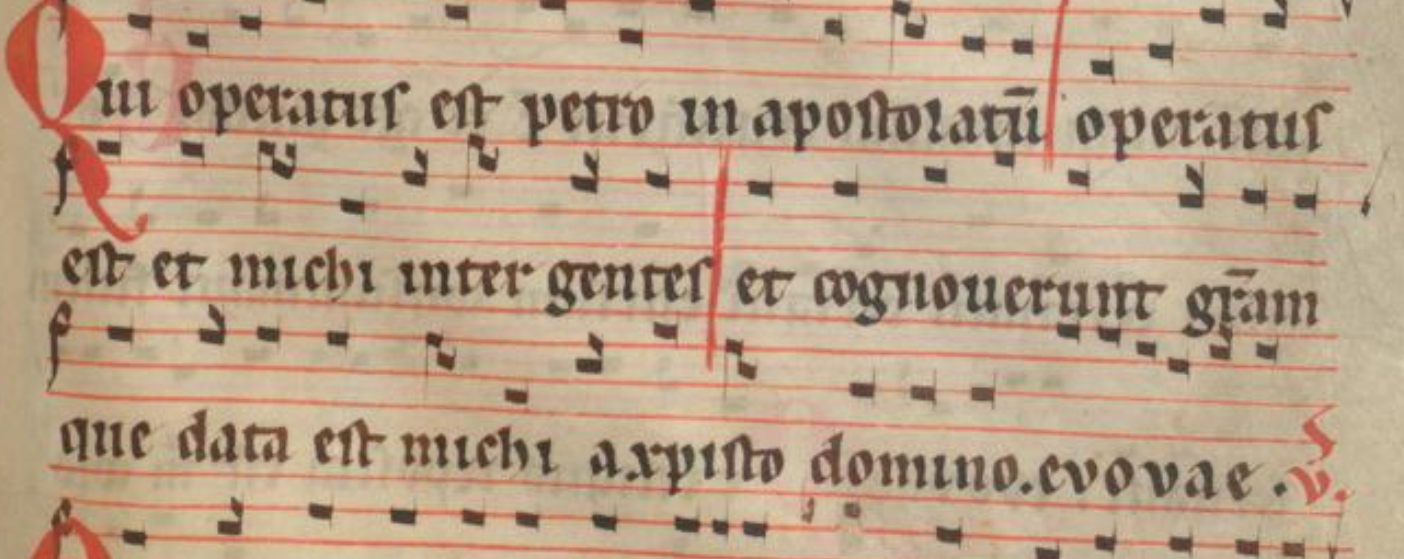 Qui operatus est petro in apostolatū operatus
est et michi inter gentes et cognouerunt gr̄am
que data est michi a xpisto domino. evovae. v.